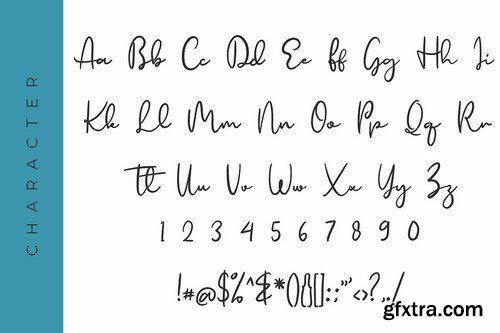 CHARACTER
Aa Bb Cc Dd Ee ff Gg Hh Ii
Kk Ll Mm Nn Oo Pp Qq Rr
tt Uu Vv Ww Xx Yy Zz
1 2 3 4 5 6 7 8 9 0
!#@$%^&*(){}[]:;"'<>?,./
gfxtra.com